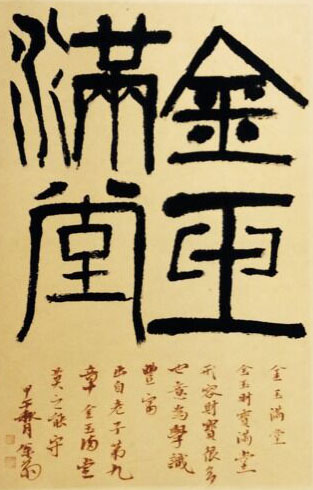 金玉
滿堂
金玉滿堂
金玉財寶滿堂
形容財寶很多
也意為學識
豐富
出自老子第九
章金玉滿堂
莫之能守
甲午秋月